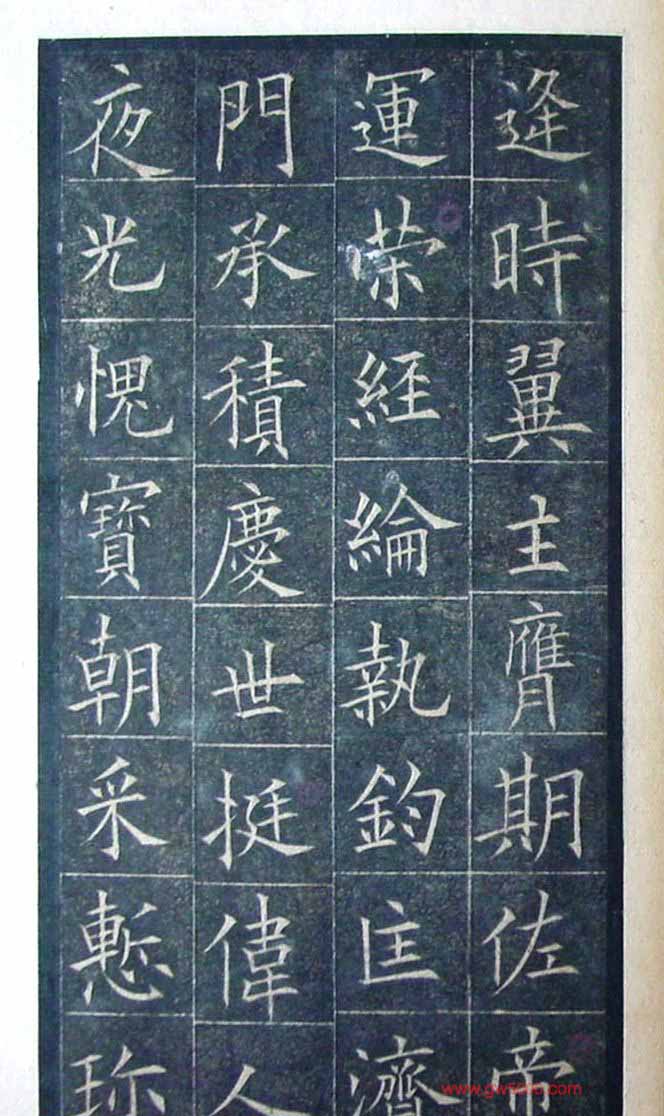 逢時翼主膺期佐帝
運荣經綸執鈞匡濟
門承積慶世挺偉人
夜光愧寶朝采慙珍